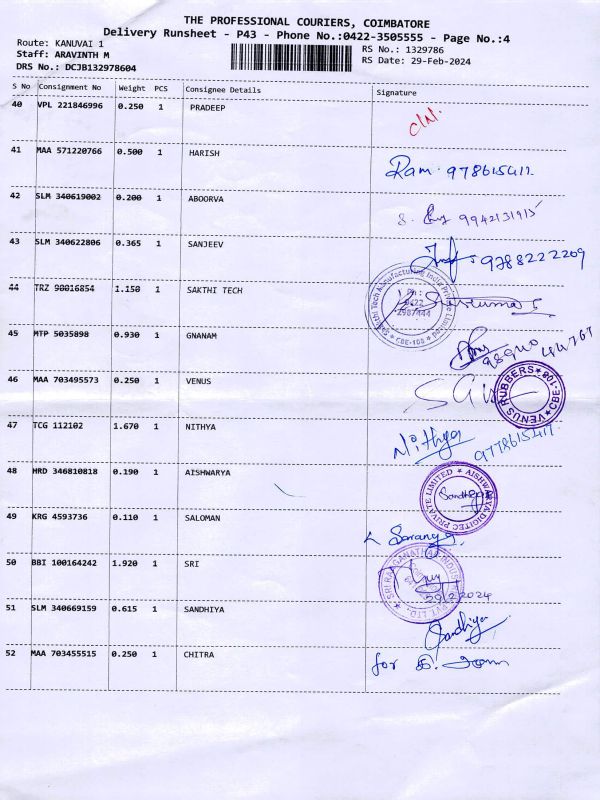 THE PROFESSIONAL COURIERS, COIMBATORE
Delivery Runsheet - P43 - Phone No.:0422-3505555 - Page No.:4
Route: KANUVAI 1
RS No.: 1329786
Staff: ARAVINTH M
RS Date: 29-Feb-2024
DRS No.: DCJB132978604
S No Consignment No Weight PCS Consignee Details Signature
40 VPL 221846996 0.250 1 PRADEEP
41 MAA 571220766 0.500 1 HARISH Ram.
42 SLM 340619002 0.200 1 ABOORVA 9942131915
43 SLM 340622806 0.365 1 SANJEEV 9788222209
44 TRZ 90016854 1.150 1 SAKTHI TECH
Sakthi Tech Manufacturing India Private Limited
Ph :
0422
2987444
CBE-108
45 MTP 5035898 0.930 1 GNANAM
46 MAA 703495573 0.250 1 VENUS
VENUS RUBBERS CBE-108
47 TCG 112102 1.670 1 NITHYA Nithya
48 HRD 346810818 0.190 1 AISHWARYA
AISHWARYA DIGITEC PRIVATE LIMITED
Sandhiya
49 KRG 4593736 0.110 1 SALOMAN
50 BBI 100164242 1.920 1 SRI
SRI RANGANATHAR INDUSTRIES PVT LTD.
29/2/2024
51 SLM 340669159 0.615 1 SANDHIYA Sandhiya
52 MAA 703455515 0.250 1 CHITRA for